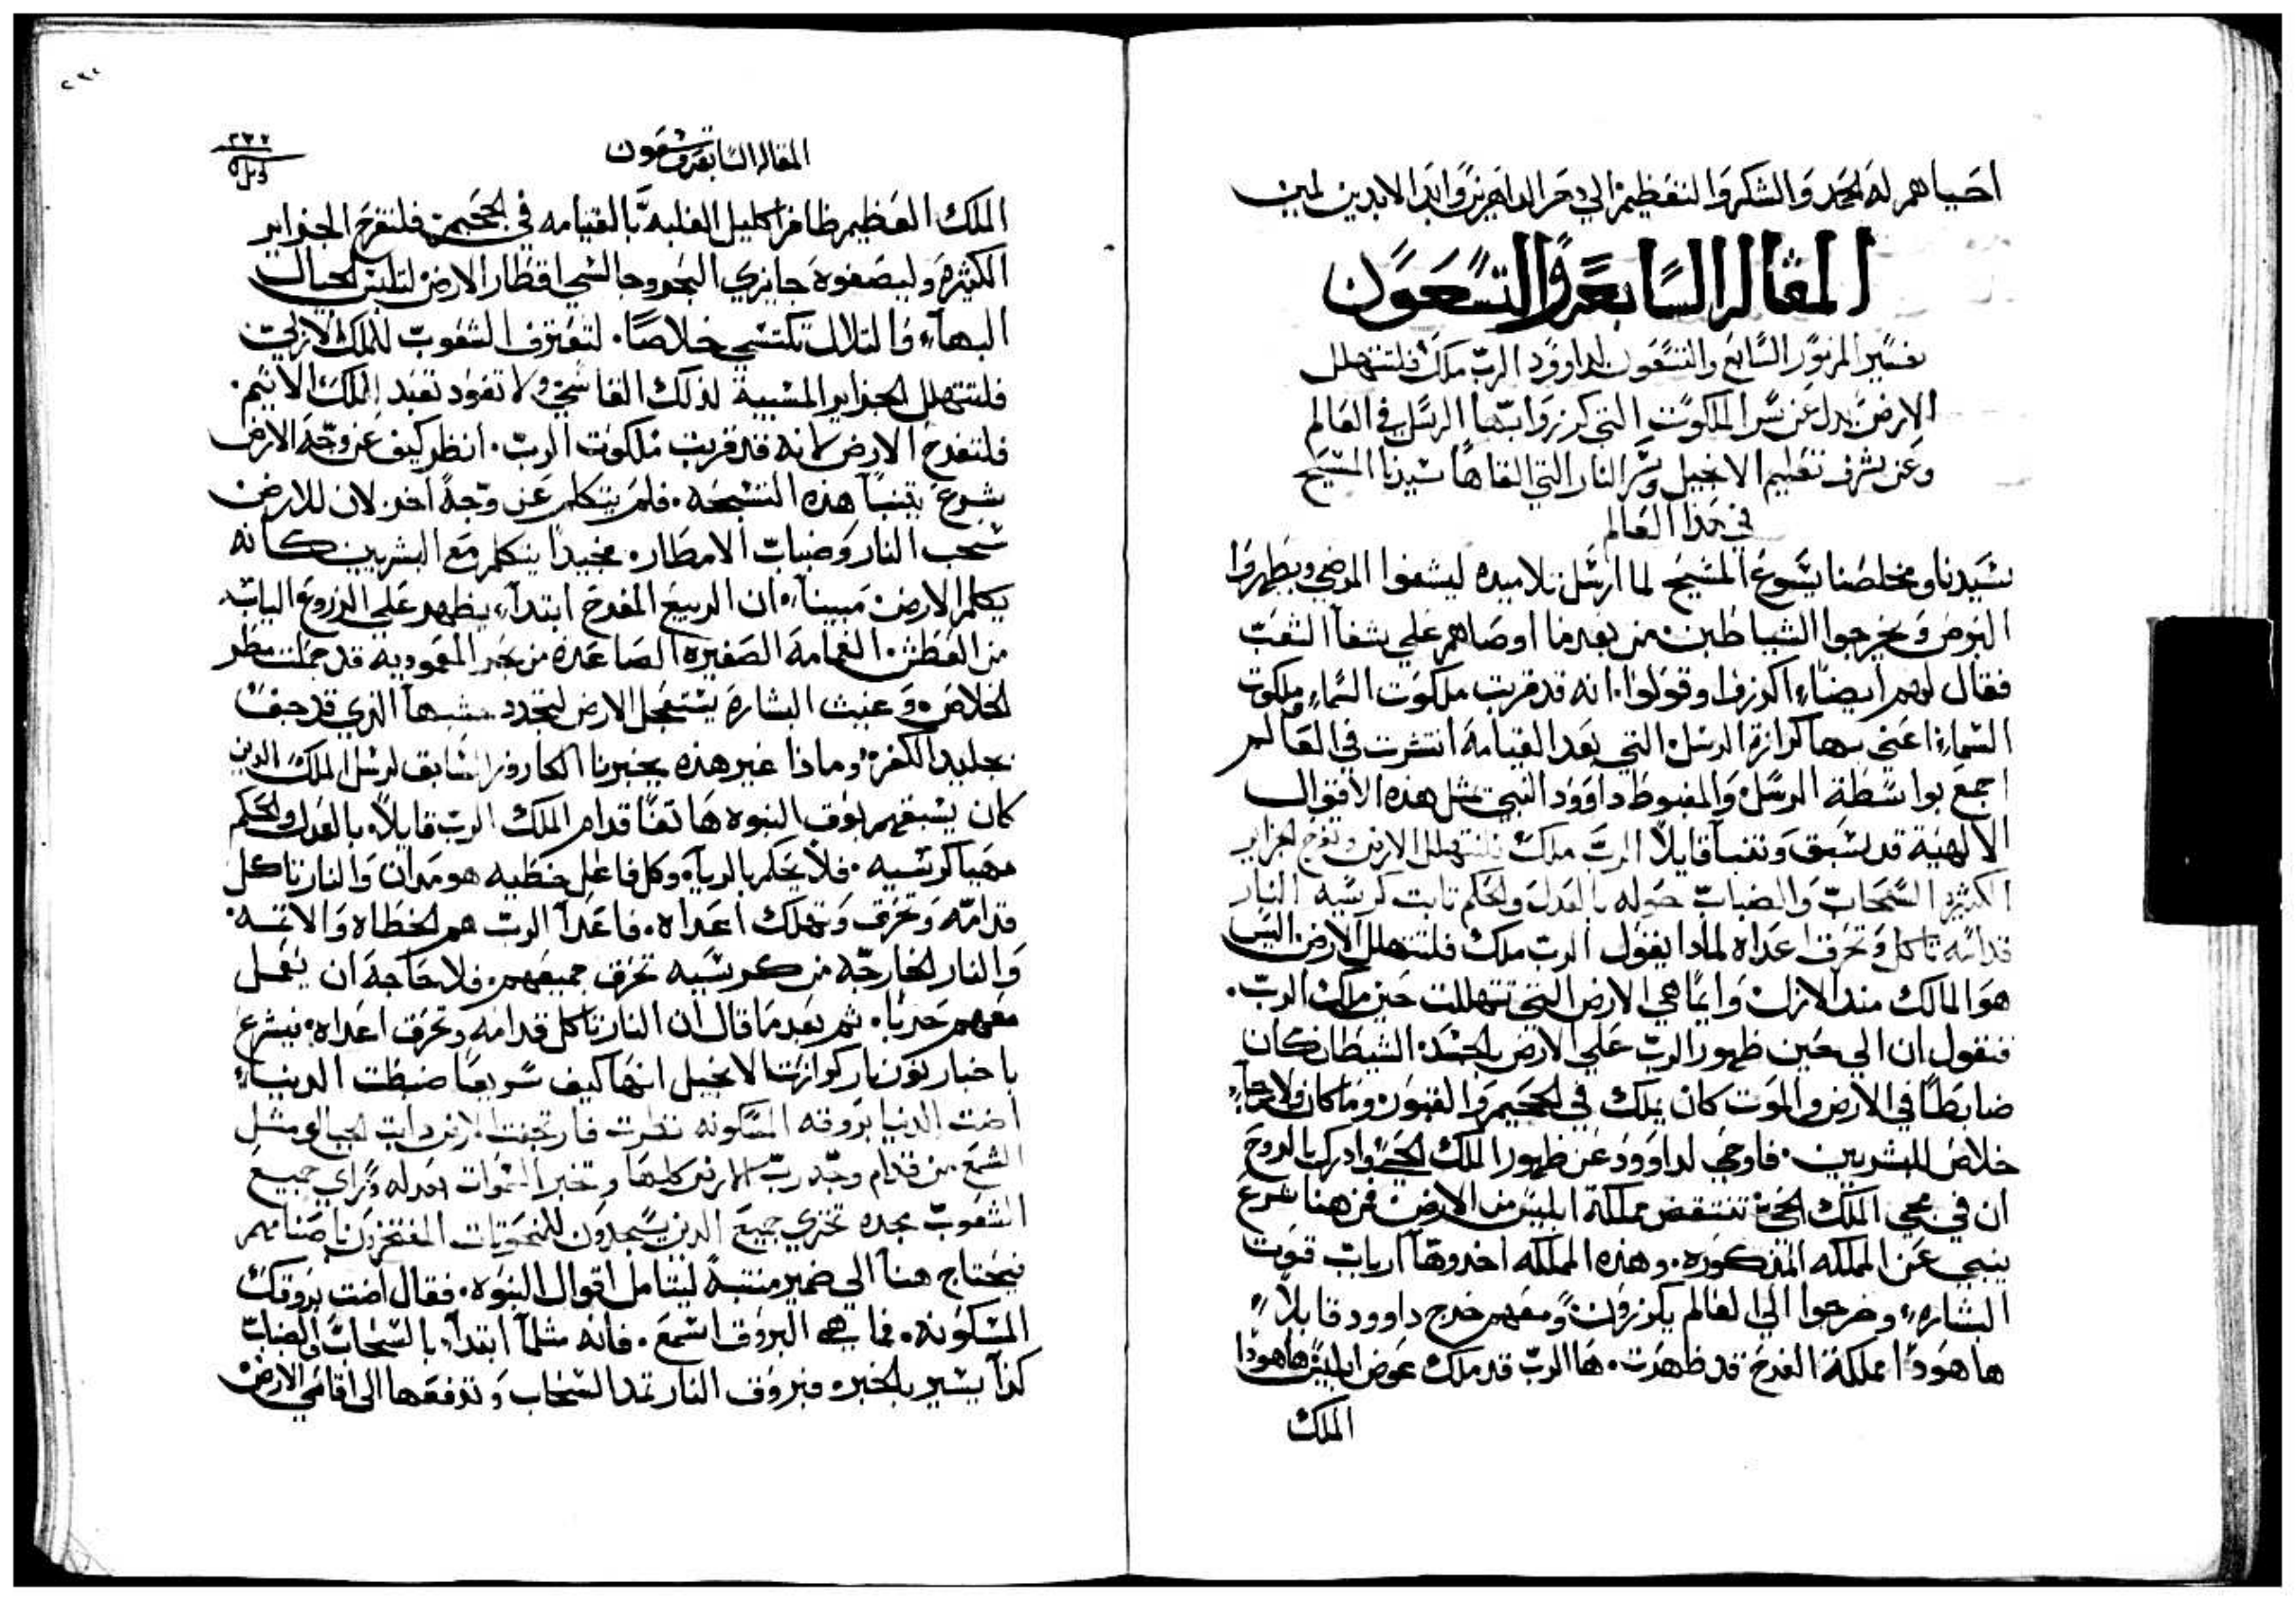 احياهم له الحمد والشكر والتعظيم الي دهر الداهرين وابد الابدين امين
المقاله السابعه والتسعون
تفسير المزمور السابع والتسعون لداوود الرب ملك فلتتهلل
الارض يدل عن سر الملكوت التي كرزوا بها الرسل في العالم
وعن شرف تعليم الانجيل وسر النار التي القاها سيدنا المسيح
في هذا العالم
سيدنا ومخلصنا يسوع المسيح لما ارسل تلاميده ليشفوا المرضي ويطهروا
البرص ويخرجوا الشياطين من بعد ما اوصاهم علي شفا الشعب
فقال لهم ايضاً اكرزوا وقولوا انه قد قربت ملكوت السماء وملكوت
السماء اعني بها كرازة الرسل التي بعد القيامه انتشرت في العالم
اجمع بواسطة الرسل والمغبوط داوود النبي بمثل هذه الاقوال
الالهية قد سبق وتنبا قايلاً الرب ملك فلتتهلل الارض وتفرح الجزاير
الكثيرة السحاب والضباب حوله بالعدل والحكم ثابت كرسيه النار
قدامه تاكل وتحرق اعداه لمادا يقول الرب ملك فلتتهلل الارض اليس
هو المالك مند الازل وايما هي الارض التي تتهللت حين ملك الرب.
فنقول ان الي حين ظهور الرب علي الارض بالجسد الشيطان كان
ضابطاً في الارض والموت كان يملك في الجحيم والقبور وما كان ولا رجاء
خلاص للبشريين. فاوحي لداوود عن ظهور الملك الحي وادرك بالروح
ان في مجي الملك الحي تنتقض مملكة ابليس من الارض فمن هنا شرع
ينبي عن المملكه المذكوره وهذه المملكه اخدوها ارباب قوت
البشاره وخرجوا الي العالم يكرزون ومعهم خرج داوود قايلاً
ها هودا مملكة الفرح قد ظهرت. ها الرب قد ملك عوض ابليس ها هودا
الملك
المقاله السابعه وتسعون
٢٧٢
الملك العظيم ظافراً كليل الغلبه بالقيامه في الجحيم فلتفرح الجزاير
الكثيرة وليصغوه جايزي البحر وجالسي اقطار الارض لتلبس الجبال
البهاء والتلال تكتسي خلاصاً. لتعترف الشعوب للملك الازلي
فلتتهلل الجزاير المسبية لذلك القاسي ولا تعود تعبد الملك الاثيم.
فلتفرح الارض لانه قد قربت ملكوت الرب. انظر كيف عن وجه الارض
شرع يتنبا هذه التسبحه. فلم يتكلم عن وجهاً اخر لان للارض
سحب النار وضباب الامطار. مجيداً يتكلم مع البشريين كانه
يكلم الارض مبيناً ان الربيع المفرح ابتداء يظهر علي الزروع اليابسه
من العطش الغمامه الصغيره الصاعده من بحر المعموديه قد حملت مطر
الخلاص وغيث البشارة يستعجل الارض ليجدد عشبها الذي قد جف
بجليد الكفر وماذا غير هذه يخبرنا الكاروز السابق لرسل الملك الدين
كان يسبقهم بوق النبوه هاتفاً قدام الملك الرب قايلاً بالعدل والحكم
مهيا كرسيه. فلا يحكم بالرياء وكل فاعل خطيه هو مدان والنار تاكل
قدامه وتحرق وتهلك اعداه. فاعدا الرب هم الخطاه والاثمه
والنار الخارجه من كرسيه تحرق جميعهم. فلا حاجة ان يعمل
معهم حرباً. ثم بعد ما قال ان النار تاكل قدامه وتحرق اعداه شرع
باخبار كون نار كرازت الانجيل انها كيف سريعاً ضبطت الدنيا
اضت الدنيا بروقه المسكونه نظرت فارتجفت الارض دابت الجبال مثل
الشمع من قدام وجه رب الارض كلها وتخبر السموات بعدله وراي جميع
الشعوب مجده تخزي جميع الدين يسجدون للمنحوتات المفتخرون باصنامهم
فيحتاج هنا الي ضمير منتبه ليتامل اقوال النبوه. فقال اضت بروقك
المسكونه. فما هي البروق اسمع. فانه مثلما ابتدا بالسحاب والضباب
كذا يشير بالخبر. فبروق النار تمد السحاب وتدفعها الي اقاصي الارض